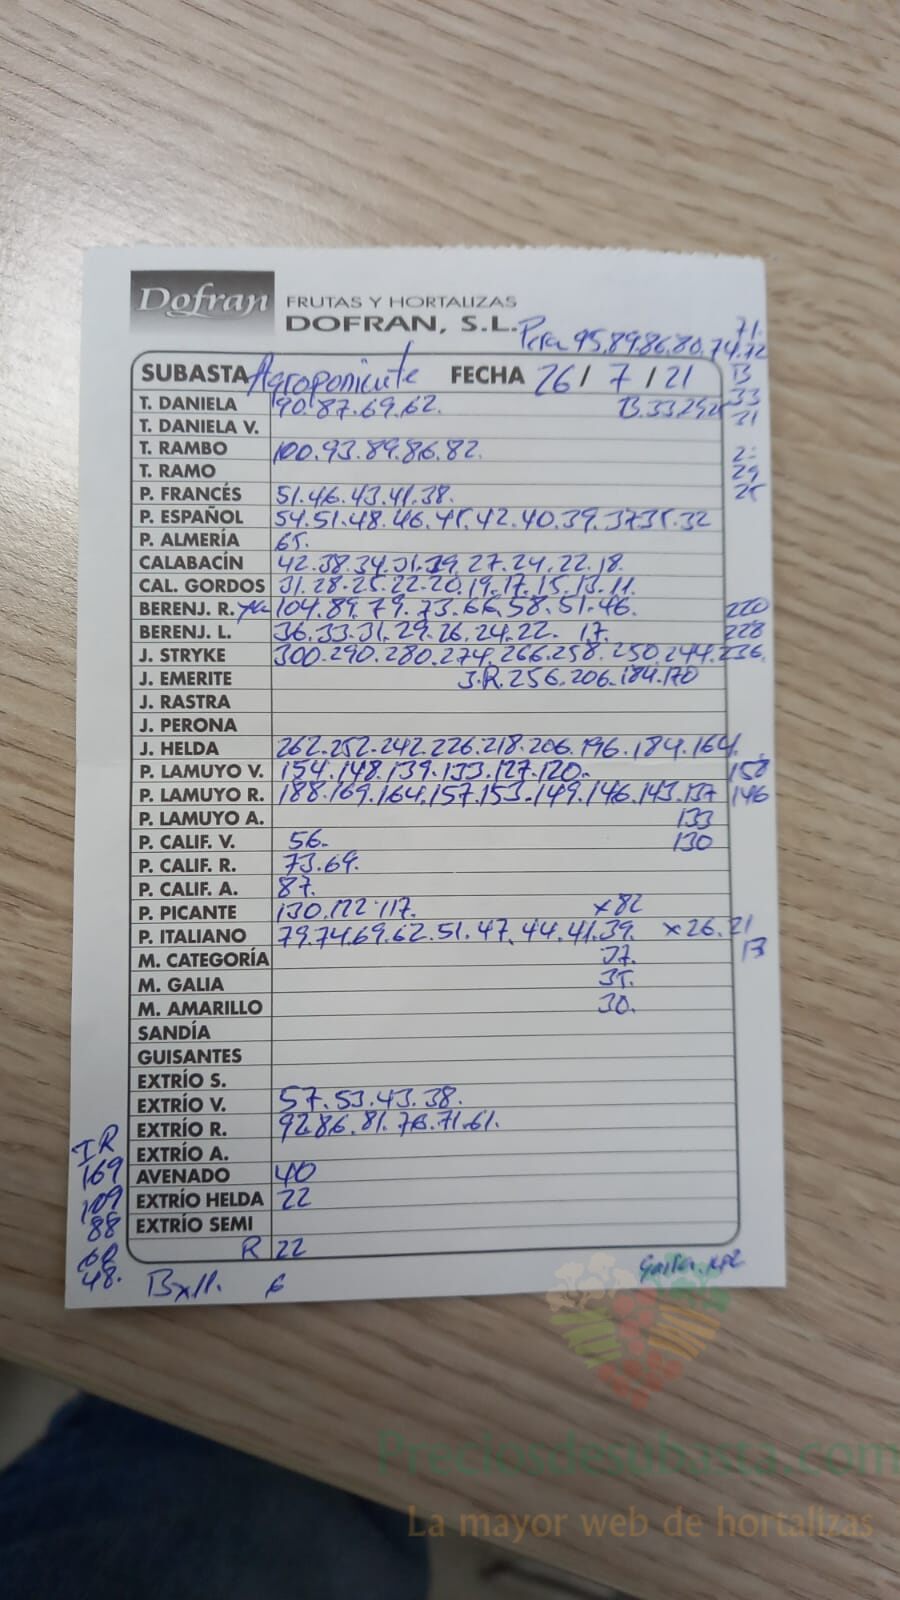 Dofran FRUTAS Y HORTALIZAS
DOFRAN, S.L.
Pera 95.89.86.80.74.72
71.
SUBASTA Agroponiente FECHA 26/7/21 B
T. DANIELA 90.87.69.62. B.33.29.25 33
31
T. DANIELA V.
T. RAMBO 100.93.89.86.82.
T. RAMO 29
P. FRANCÉS 51.46.43.41.38. 25
P. ESPAÑOL 54.51.48.46.45.42.40.39.37.35.32
P. ALMERÍA 65.
CALABACÍN 42.38.34.31.29.27.24.22.18.
CAL. GORDOS 31.28.25.22.20.19.17.15.13.11.
BERENJ. R. 104.89.79.73.66.58.51.46. 220
BERENJ. L. 36.33.31.29.26.24.22. 17. 228
J. STRYKE 300.290.280.274.266.258.250.244.236.
J. EMERITE J.R.256.206.184.170
J. RASTRA
J. PERONA
J. HELDA 262.252.242.226.218.206.196.184.164.
P. LAMUYO V. 154.148.139.133.127.120. 150
P. LAMUYO R. 188.169.164.157.153.149.146.143.137 146
P. LAMUYO A. 133
P. CALIF. V. 56. 130
P. CALIF. R. 73.69.
P. CALIF. A. 87.
P. PICANTE 130.122.117. x82
P. ITALIANO 79.74.69.62.51.47.44.41.39. x26.21
M. CATEGORÍA 37. 13
M. GALIA 35.
M. AMARILLO 30.
SANDÍA
GUISANTES
EXTRÍO S.
EXTRÍO V. 57.53.43.38.
EXTRÍO R. 92.86.81.76.71.61.
IR
EXTRÍO A.
169 AVENADO 40
109 EXTRÍO HELDA 22
88 EXTRÍO SEMI
60 R 22
48. Bxll. 6
Preciosdesubasta.com
La mayor web de hortalizas